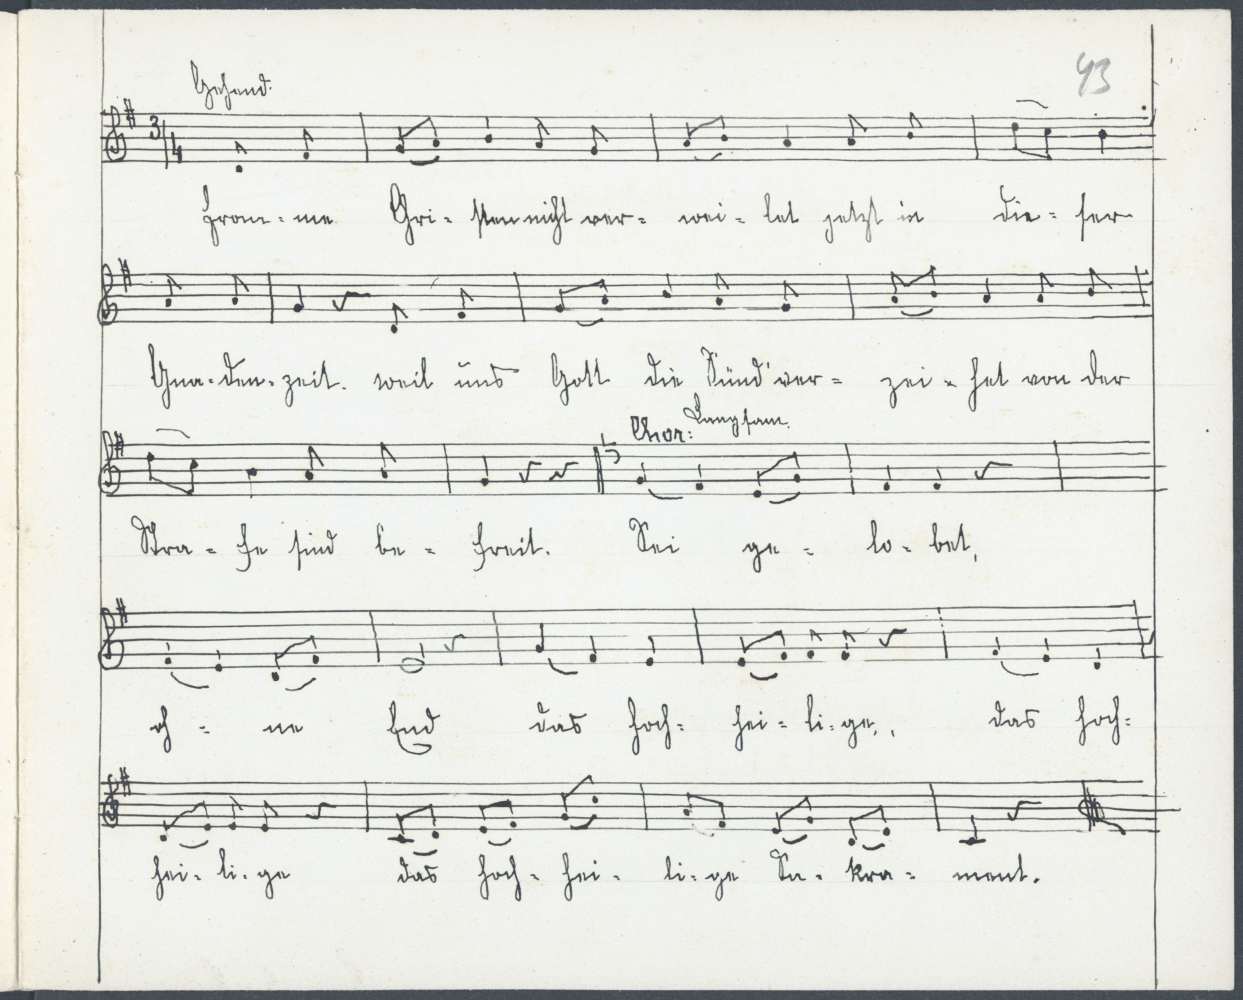 43
Gehend.
3/4
From-me Chri-sten nicht ver-wei-let jetzt in die-ser
Gna-den-zeit. weil uns Gott die Sünd' ver-zei-het von der
Chor: Langsam.
Stra-fe sind be-freit. Sei ge-lo-bet,
oh-ne End das hoch-hei-li-ge, das hoch-
hei-li-ge das hoch-hei-li-ge Sa-kra-ment.